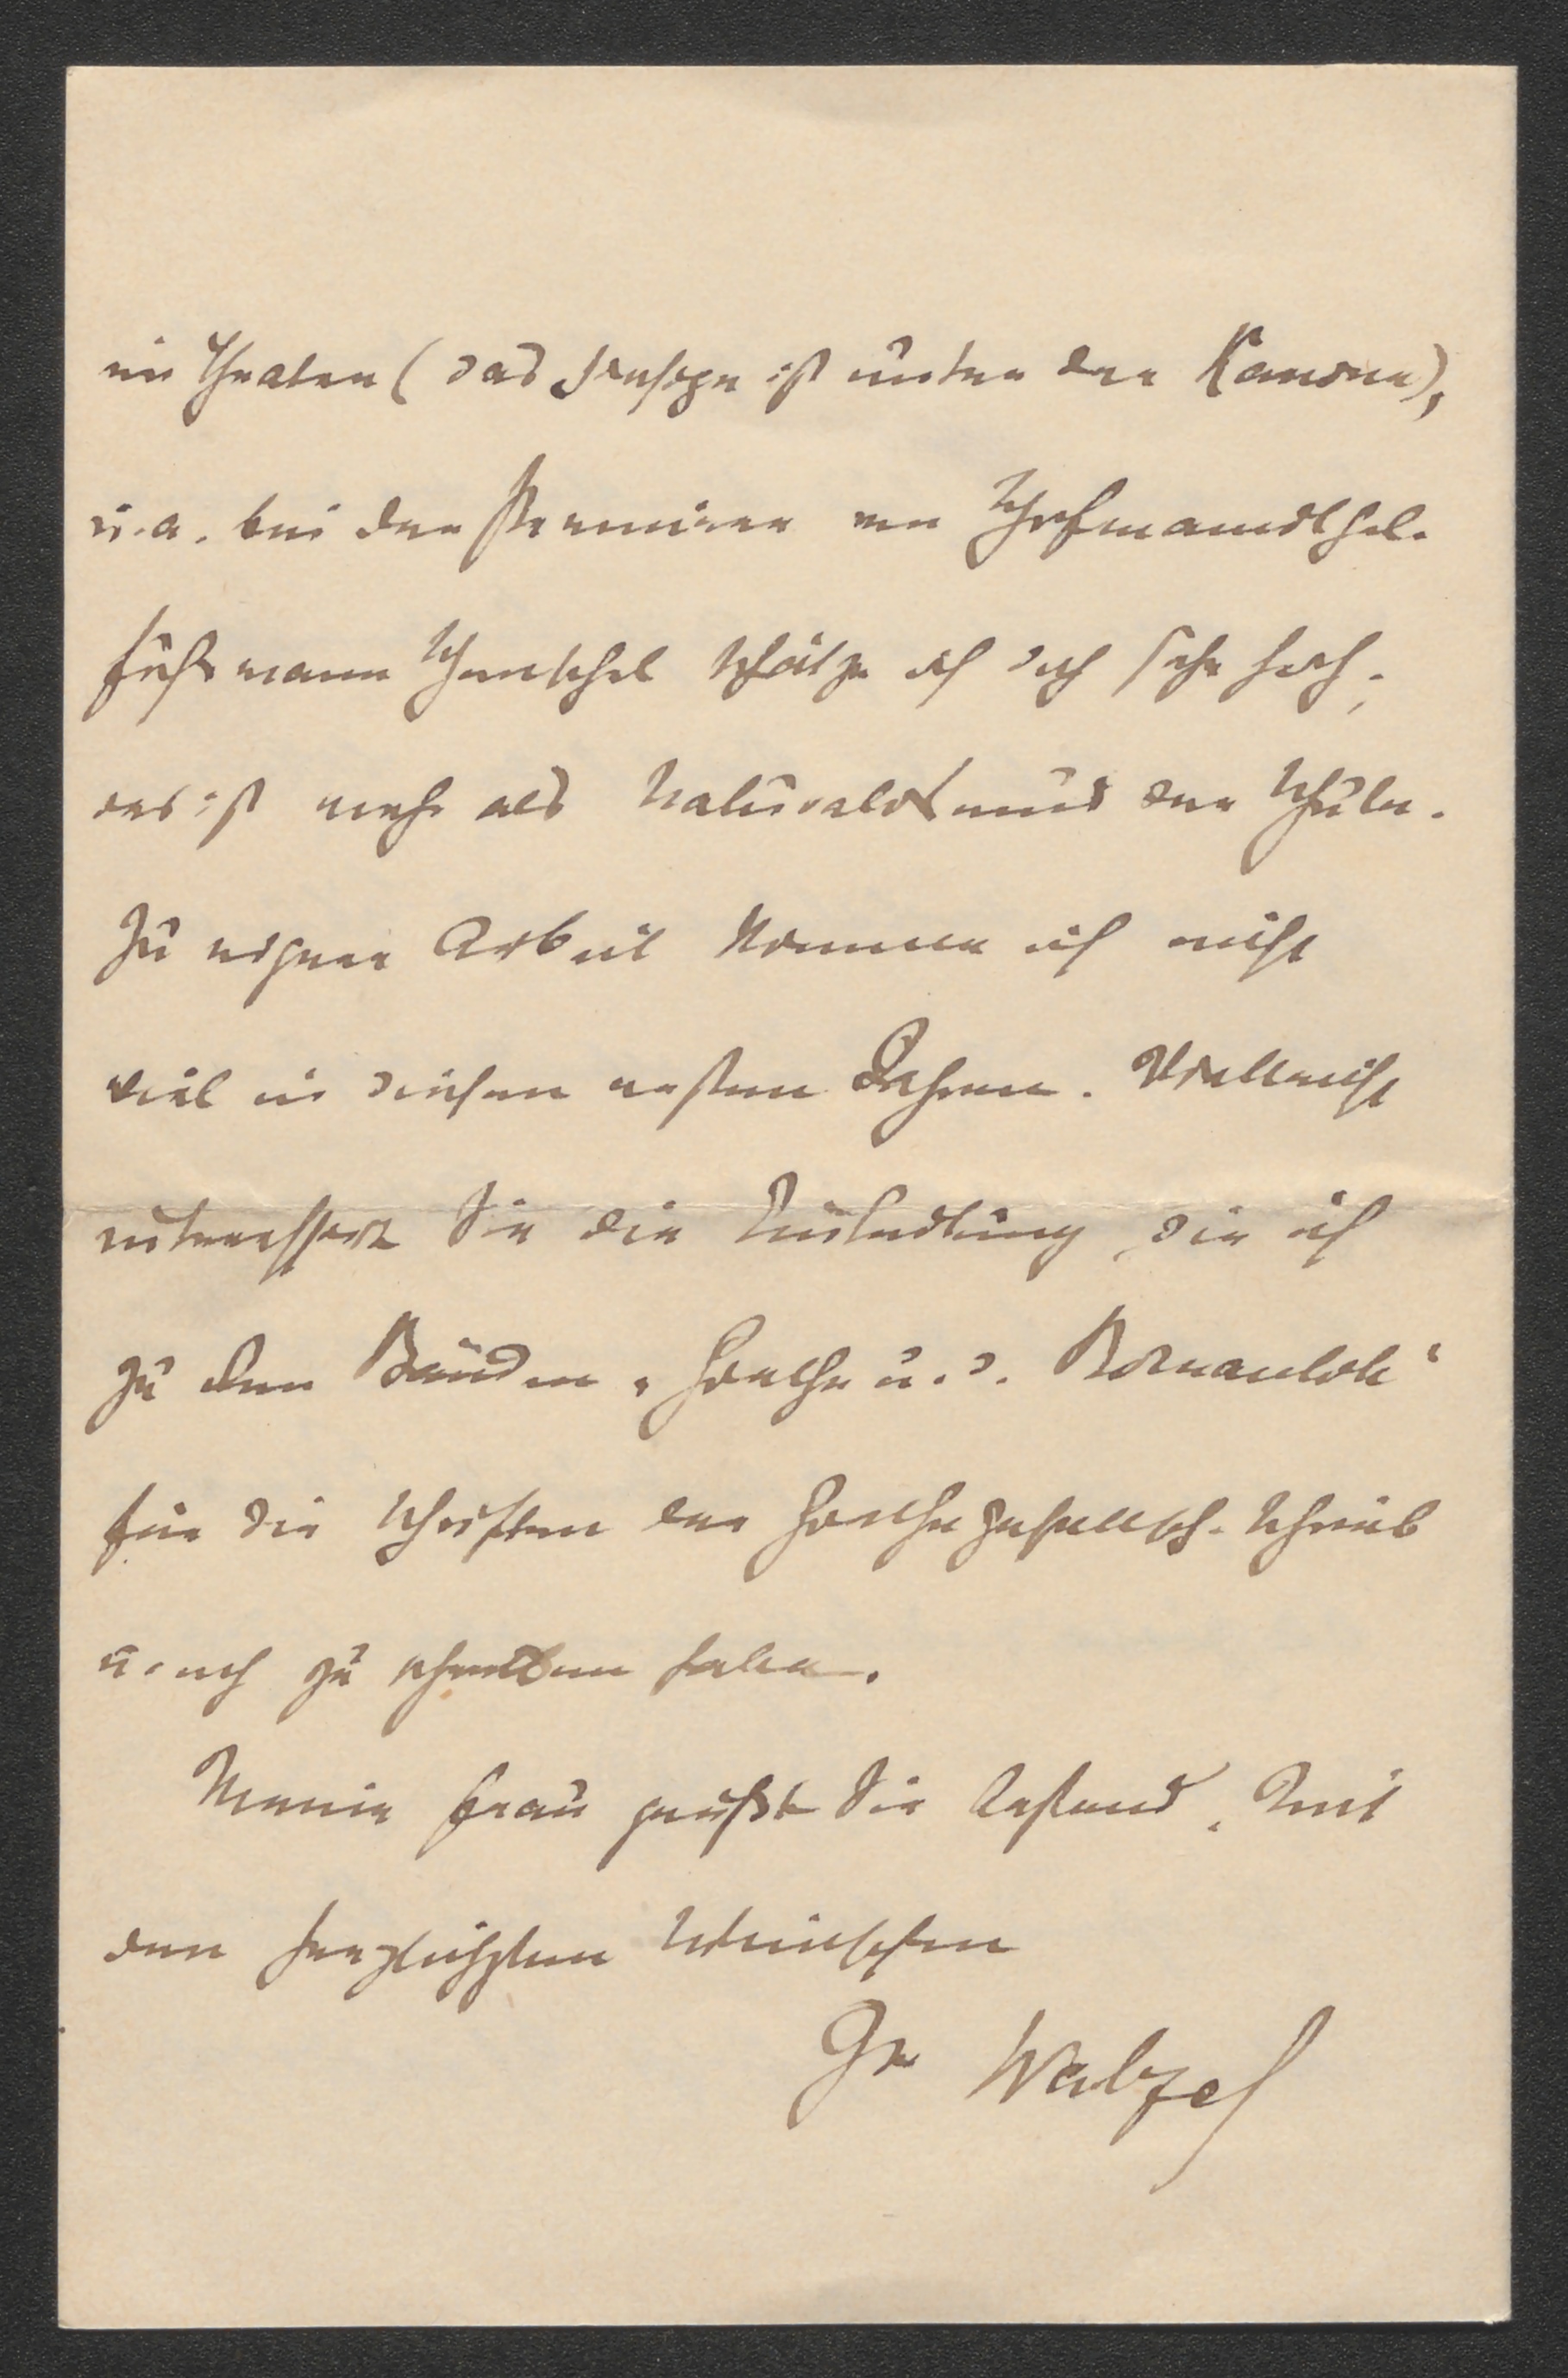 im Theater (das hiesige ist unter der Kanone),
u. a. bei der Premiere von Hofmannsthal.
Fuhrmann Henschel schätze ich doch sehr hoch;
das ist mehr als Naturalismus der Schule.
Zu eigner Arbeit komme ich nicht
viel in diesen ersten Jahren. Vielleicht
interessirt Sie die Einleitung, die ich
zu den Bänden „Goethe u. d. Romantik“
für die Schriften der Goethegesellsch. schrieb
u. noch zu schreiben habe.
Meine Frau grüßt Sie bestens. Mit
den herzlichsten Wünschen
Ihr Walzel